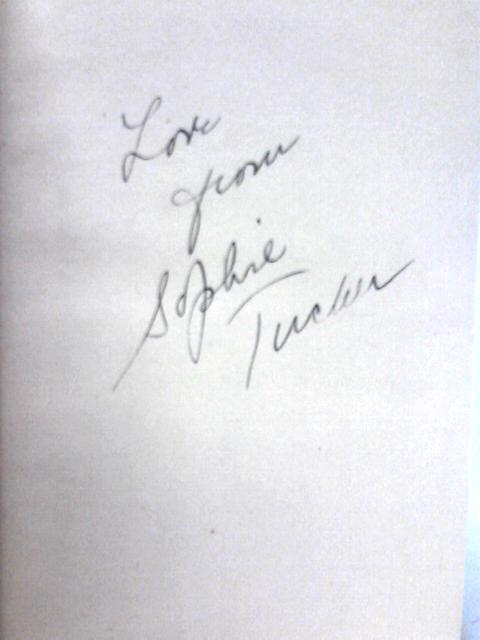 Love
from
Sophie
Tucker